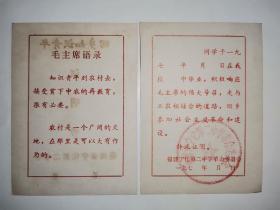 毛主席语录
知识青年到农村去，
接受贫下中农的再教育，
很有必要。
农村是一个广阔的天
地，在那里是可以大有作
为的。
同学于一九
七 年 月 日在我
校 中毕业，积极响应
毛主席的伟大号召，走与
工农相结合的道路，回乡
参加社会主义革命和建
设。
特此证明。
第二中学革命委员会
一九七 年 月 日